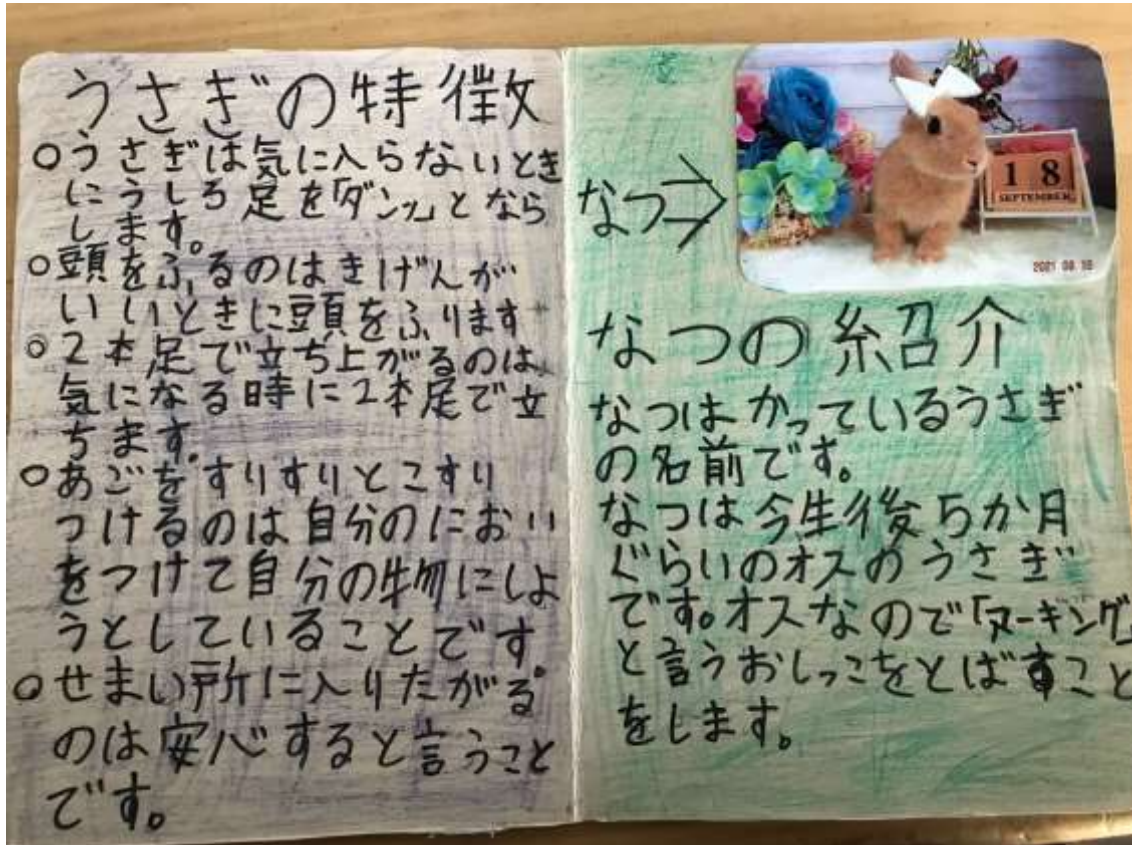 うさぎの特徴
○うさぎは気に入らないとき
にうしろ足を「ダンッ」となら
します。
○頭をふるのはきげんが
いいときに頭をふります
○2本足で立ち上がるのは、
気になる時に2本足で立
ちます。
○あごをすりすりとこすり
つけるのは自分のにおい
をつけて自分の物にしよ
うとしていることです。
○せまい所に入りたがる
のは安心すると言うこと
です。
なつ→
18
SEPTEMBER
2021 09 18
なつの紹介
なつはかっているうさぎ
の名前です。
なつは今生後5か月
ぐらいのオスのうさぎ
です。オスなので「ヌーキング」
と言うおしっこをとばすこと
をします。